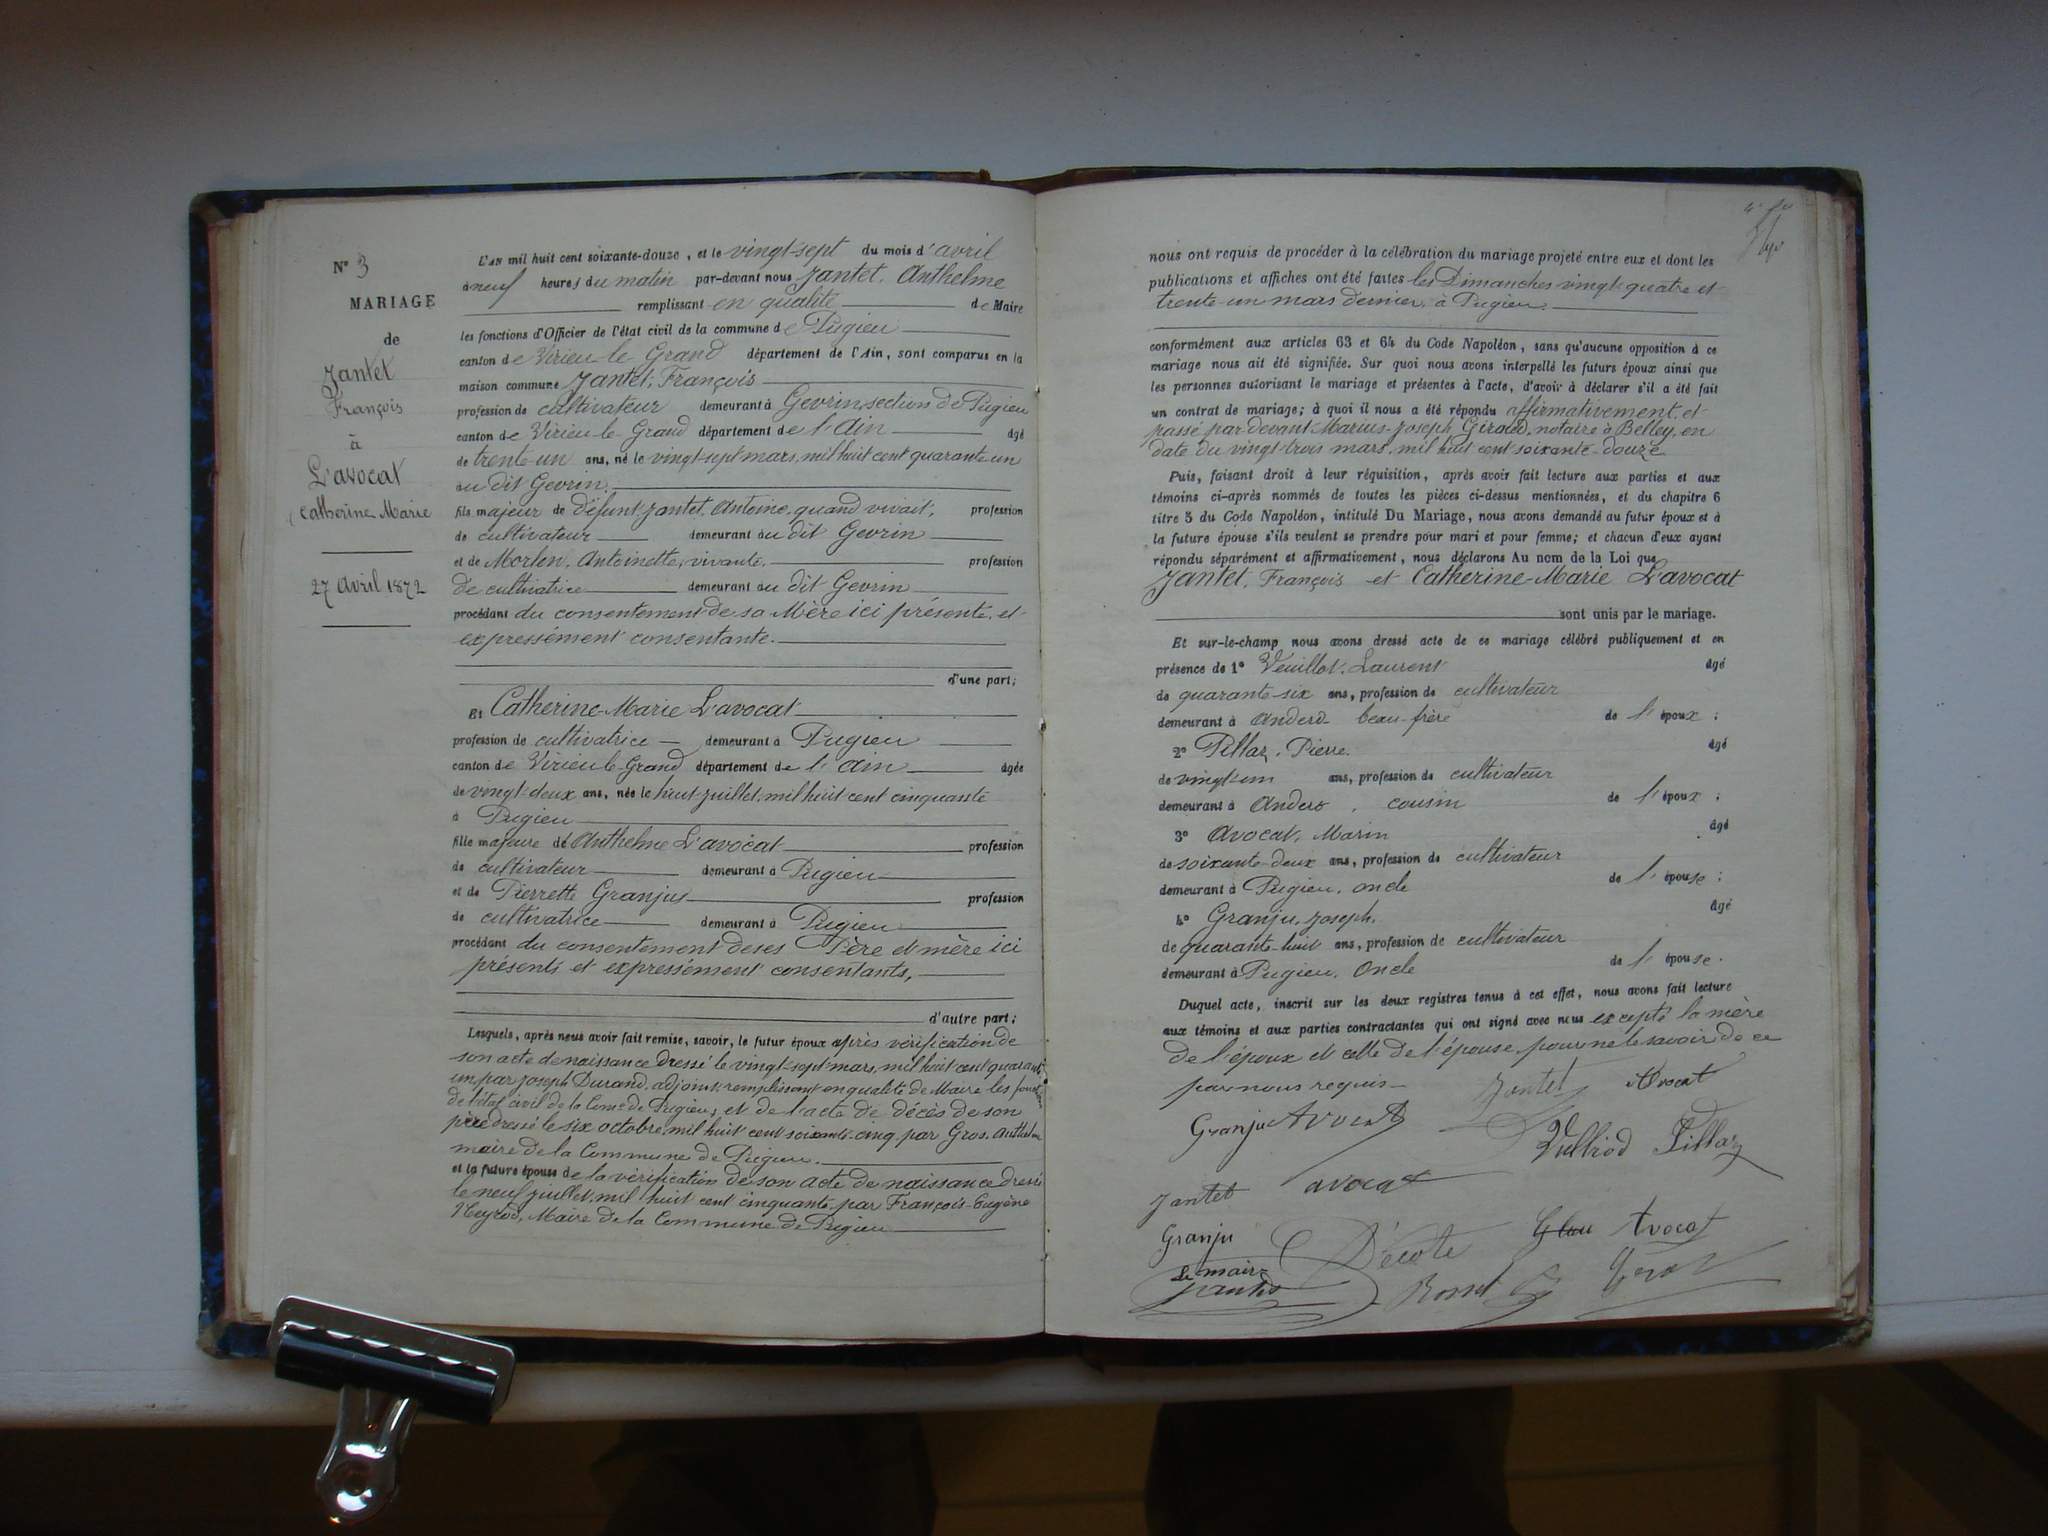 N° 3
MARIAGE
de
Jantet
François
à
L'avocat
Catherine Marie
27 Avril 1872
L'AN mil huit cent soixante-douze, et le vingt-sept du mois d'avril
à neuf heures du matin par-devant nous Jantet, Anthelme
remplissant en qualité de Maire
les fonctions d'Officier de l'état civil de la commune de Pugieu
canton de Virieu-le-Grand département de l'Ain, sont comparus en la
maison commune Jantet, François
profession de cultivateur demeurant à Gevrin, section de Pugieu
canton de Virieu-le-Grand département de l'Ain âgé
de trente-un ans, né le vingt-sept mars, mil huit cent quarante-un
au dit Gevrin.
fils majeur de Défunt Jantet, Antoine, quand vivait, profession
de cultivateur demeurant au dit Gevrin
et de Antoinette, vivante. profession
de cultivatrice demeurant au dit Gevrin
procédant du consentement de sa Mère ici présente, et
expressément consentante.
d'une part;
Et Catherine-Marie L'avocat
profession de cultivatrice demeurant à Pugieu
canton de Virieu-le-Grand département de l'Ain âgée
de vingt-deux ans, née le huit juillet, mil huit cent cinquante
à Pugieu
fille majeure de Anthelme L'avocat profession
de cultivateur demeurant à Pugieu
et de Pierrette Granju profession
de cultivatrice demeurant à Pugieu
procédant du consentement de ses Père et mère ici
présents et expressément consentants,
d'autre part;
Lesquels, après nous avoir fait remise, savoir, le futur époux après vérification de
son acte de naissance dressé le vingt-sept mars, mil huit cent quarante
un par Joseph Durand, adjoint, remplissant en qualité de Maire les
de l'état civil de la Com.e de Pugieu, et de l'acte de décès de son
père dressé le six octobre, mil huit cent soixante-cinq par Gros, Anthelme
maire de la Commune de Pugieu.
et la future épouse de la vérification de son acte de naissance dressé
le neuf juillet, mil huit cent cinquante, par François-Eugène
Neyrod, Maire de la Commune de Pugieu
nous ont requis de procéder à la célébration du mariage projeté entre eux et dont les
publications et affiches ont été faites les Dimanches vingt-quatre et
trente-un mars dernier, à Pugieu.
conformément aux articles 63 et 64 du Code Napoléon, sans qu'aucune opposition à ce
mariage nous ait été signifiée. Sur quoi nous avons interpellé les futurs époux ainsi que
les personnes autorisant le mariage et présentes à l'acte, d'avoir à déclarer s'il a été fait
un contrat de mariage; à quoi il nous a été répondu affirmativement, et
passé par-devant Marius-Joseph Giraud, notaire à Belley, en
date du vingt-trois mars, mil huit cent soixante-douze
Puis, faisant droit à leur réquisition, après avoir fait lecture aux parties et aux
témoins ci-après nommés de toutes les pièces ci-dessus mentionnées, et du chapitre 6
titre 5 du Code Napoléon, intitulé Du Mariage, nous avons demandé au futur époux et à
la future épouse s'ils veulent se prendre pour mari et pour femme; et chacun d'eux ayant
répondu séparément et affirmativement, nous déclarons Au nom de la Loi que
Jantet, François et Catherine-Marie L'avocat
sont unis par le mariage.
Et sur-le-champ nous avons dressé acte de ce mariage célébré publiquement et en
présence de 1° Laurent âgé
de quarante-six ans, profession de cultivateur
demeurant à Andert beau-frère de l'époux;
2° Pillaz, Pierre. âgé
de vingt-un ans, profession de cultivateur
demeurant à Andert, cousin de l'époux;
3° Avocat, Marin âgé
de soixante-deux ans, profession de cultivateur
demeurant à Pugieu, oncle de l'épouse;
4° Granju, Joseph. âgé
de quarante-huit ans, profession de cultivateur
demeurant à Pugieu, oncle de l'épouse.
Duquel acte, inscrit sur les deux registres tenus à cet effet, nous avons fait lecture
aux témoins et aux parties contractantes qui ont signé avec nous excepté la mère
de l'époux et celle de l'épouse pour ne le savoir de ce
par nous requis
Jantet Avocat
Granju Avocat
Vulliod Pillaz
Jantet avocat
Granju Décote Avocat
Le maire
Jantet Rosset